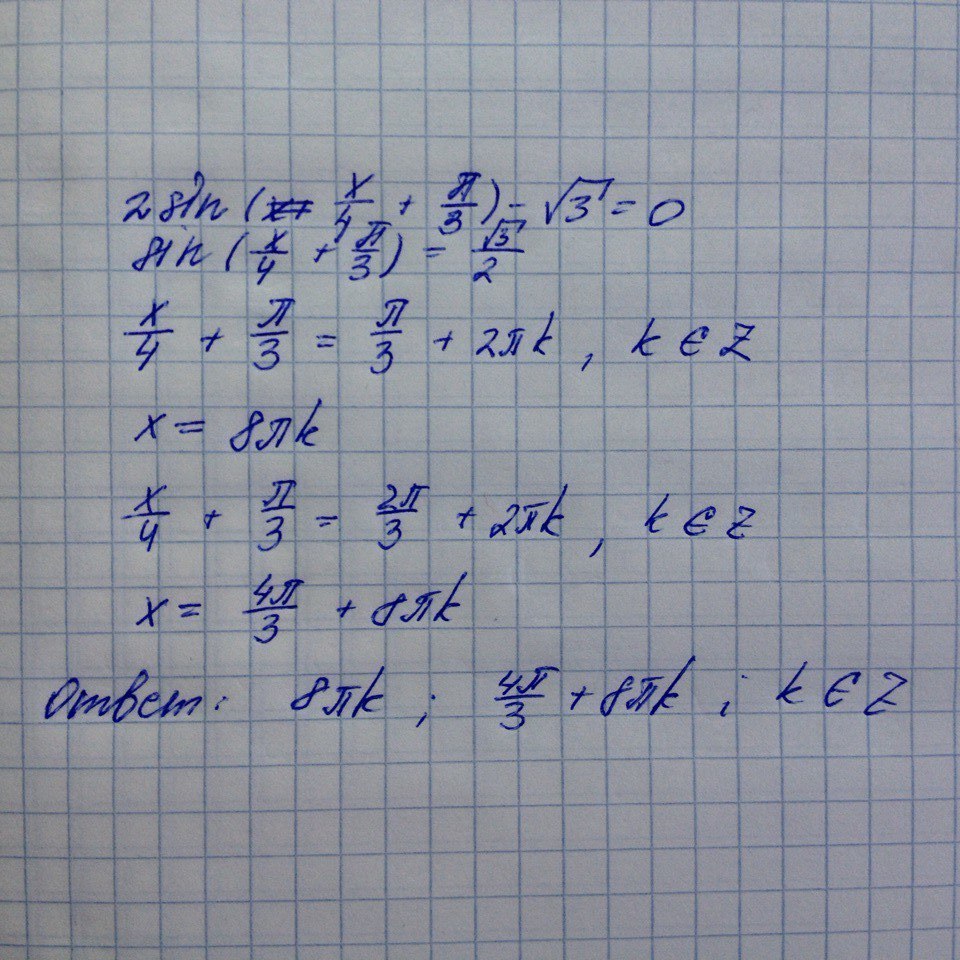 2 sin (x/4 + π/3) - √3 = 0
sin (x/4 + π/3) = √3/2
x/4 + π/3 = π/3 + 2πk, k ∈ Z
x = 8πk
x/4 + π/3 = 2π/3 + 2πk, k ∈ Z
x = 4π/3 + 8πk
Ответ: 8πk ; 4π/3 + 8πk ; k ∈ Z